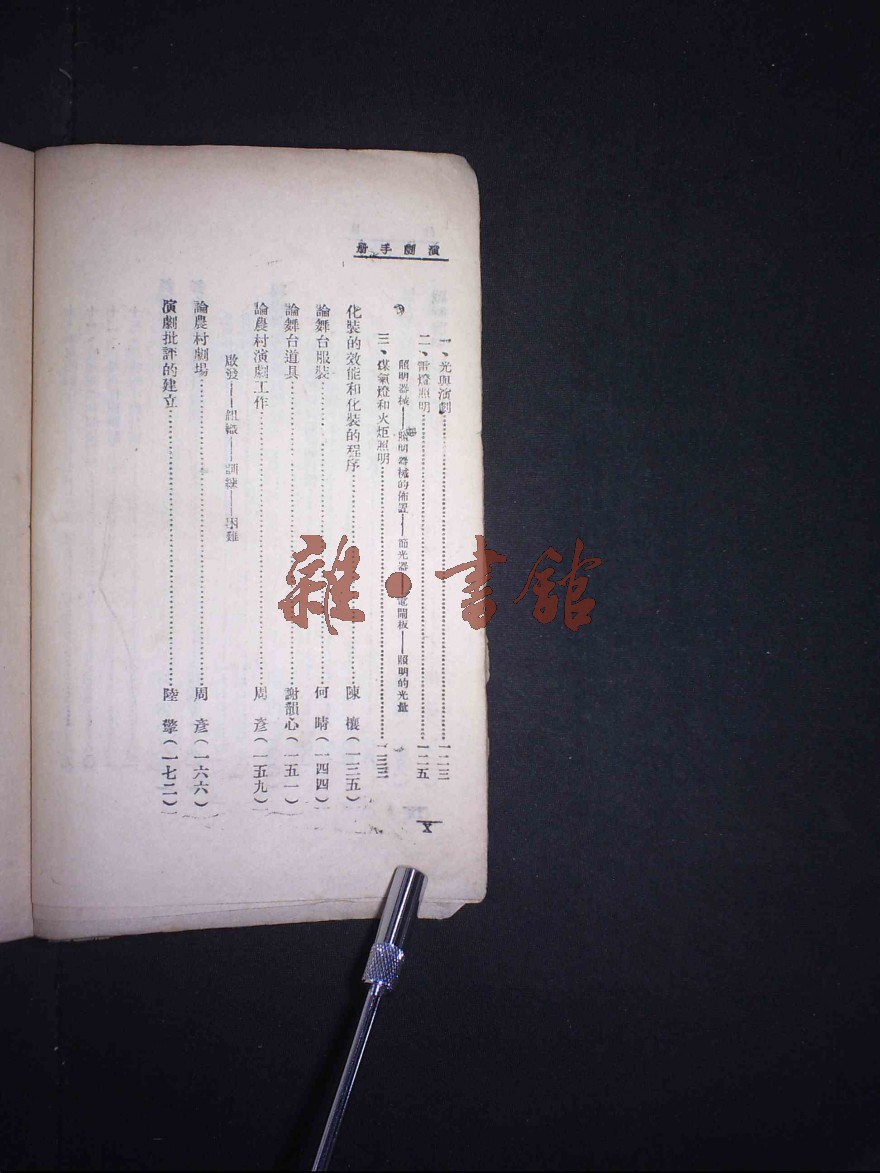 演劇手册
一、光與演劇……一二三
二、電燈照明……一二五
照明器械——照明器械的佈置——節光器——電閘板——照明的光量
三、煤氣燈和火炬照明……一三三
化裝的效能和化裝的程序……陳 檤(一三五)
論舞台服裝……何 晴(一四四)
論舞台道具……謝韻心(一五一)
論農村演劇工作……周 彥(一五九)
啟發——組織——訓練——困難
論農村劇場……周 彥(一六六)
演劇批評的建立……陸 擎(一七二)
X
雜·書館